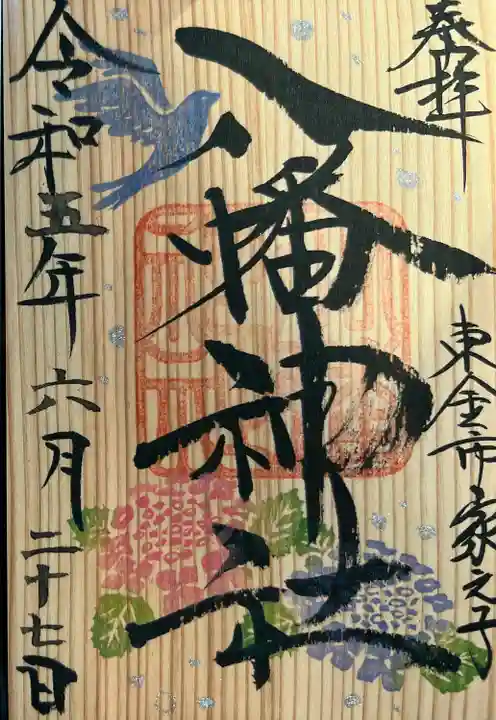 奉拝
東金市家之子
八幡神社
令和五年六月二十七日